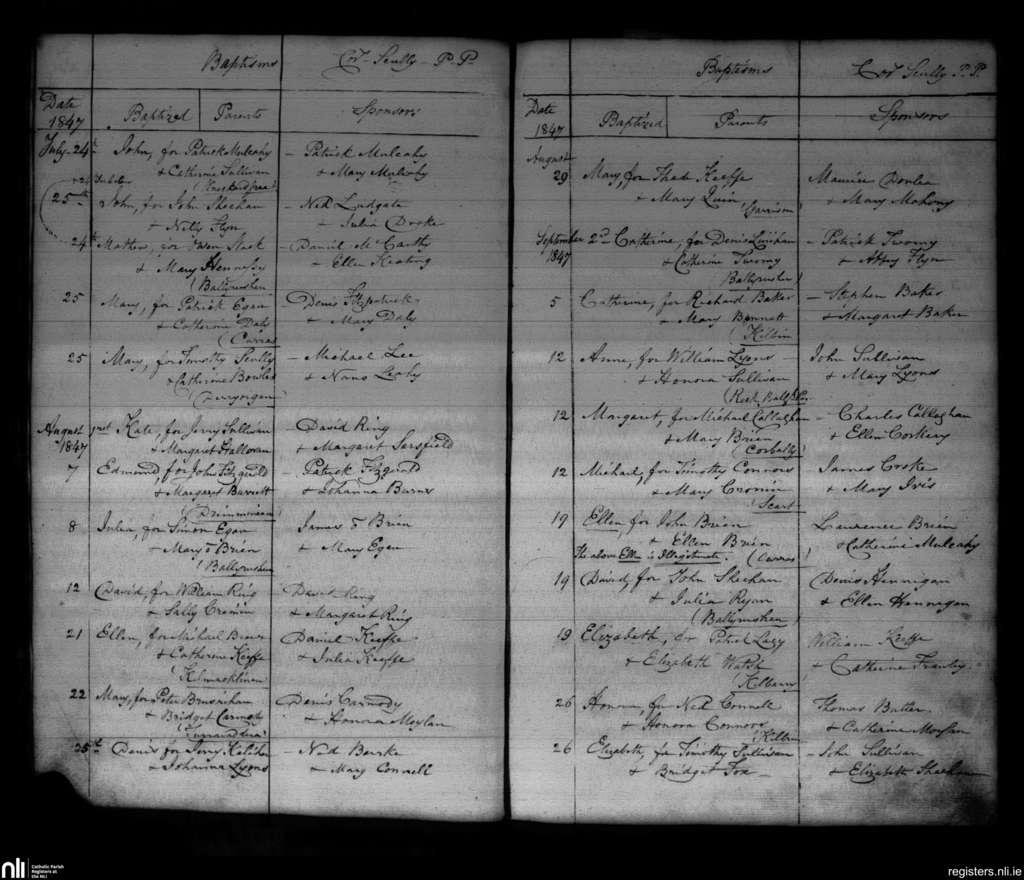 Baptisms Cor Scully P.P.
Date 1847 Baptized Parents Sponsors
July 24th John, for Patrick Mulcahy - Patrick Mulcahy
+ Catherine Sullivan + Mary Mulcahy
25th John, for John Sheehan - Ned Ludgate
+ Nelly Flyn + Julia Crooke
24th Mathew, for Owen Slack - Daniel McCarthy
+ Mary Hennessy + Ellen Keating
(Ballyrushen)
25 Mary, for Patrick Egan Denis Fitzpatrick
+ Catherine Daly + Mary Daly
(Curras)
25 Mary, for Timothy Scully - Michael Lee
+ Catherine Bowler + Nano Leahy
August 1847 1st Kate, for Jerry Sullivan David Ring
+ Margaret Halloran + Margaret Sarsfield
7 Edmond, for John Fitzgerald - Patrick Fitzgerald
+ Margaret Barrett + Johanna Barns
8 Julia, for Simon Egan James O Brien
+ Mary O Brien + Mary Egan
(Ballyrushen)
12 David, for William Ring David Ring
+ Sally Cronin + Margaret Ring
21 Ellen, for Michael Daniel Keeffe
+ Catherine Keeffe + Julia Keeffe
22 Mary, for Peter Denis Carmody
+ Bridget Carmody + Honora Moylan
25th Denis for Jerry Keliher - Ned Bourke
+ Johanna Lyons + Mary Connell
Baptisms Cor Scully P.P.
Date 1847 Baptized Parents Sponsors
August
29 Mary, for Thade Keeffe Maurice Donlea
+ Mary Quin + Mary Mahony
(Garrison)
September 1847 2d Catherine, for Denis - Patrick Twomy
+ Catherine Twomy + Abbey Flyn
(Ballyrushen)
5 Catherine, for Richard Baker - Stephen Baker
+ Mary Bennett + Margaret Baker
(Kilbrin)
12 Anne, for William Lyons - John Sullivan
+ Honora Sullivan + Mary Lyons
12 Margaret, for Michael Callaghan - Charles Callaghan
+ Mary Brien + Ellen Corkery
(Corbally)
12 Michael, for Timothy Connors James Crooke
+ Mary Cronin + Mary Ivis
(Scart)
19 Ellen for John Brien Lawrence Brien
+ Ellen Brien + Catherine Mulcahy
The above Ellen is Illegitimate. (Curras)
19 David, for John Sheehan Denis Hennigan
+ Julia Ryan + Ellen Hannegan
(Ballyrushen)
19 Elizabeth, for Patrick Lacy William Keeffe
+ Elizabeth Walsh + Catherine Frawley
(Kilbrin)
26 Honora, for Ned Connell Thomas Butler
+ Honora Connors + Catherine Moylan
(Kilbrin)
26 Elizabeth, for Timothy Sullivan - John Sullivan
+ Bridget Fox + Elizabeth Sheehan
nli Catholic Parish
Registers at
the NLI
registers.nli.ie